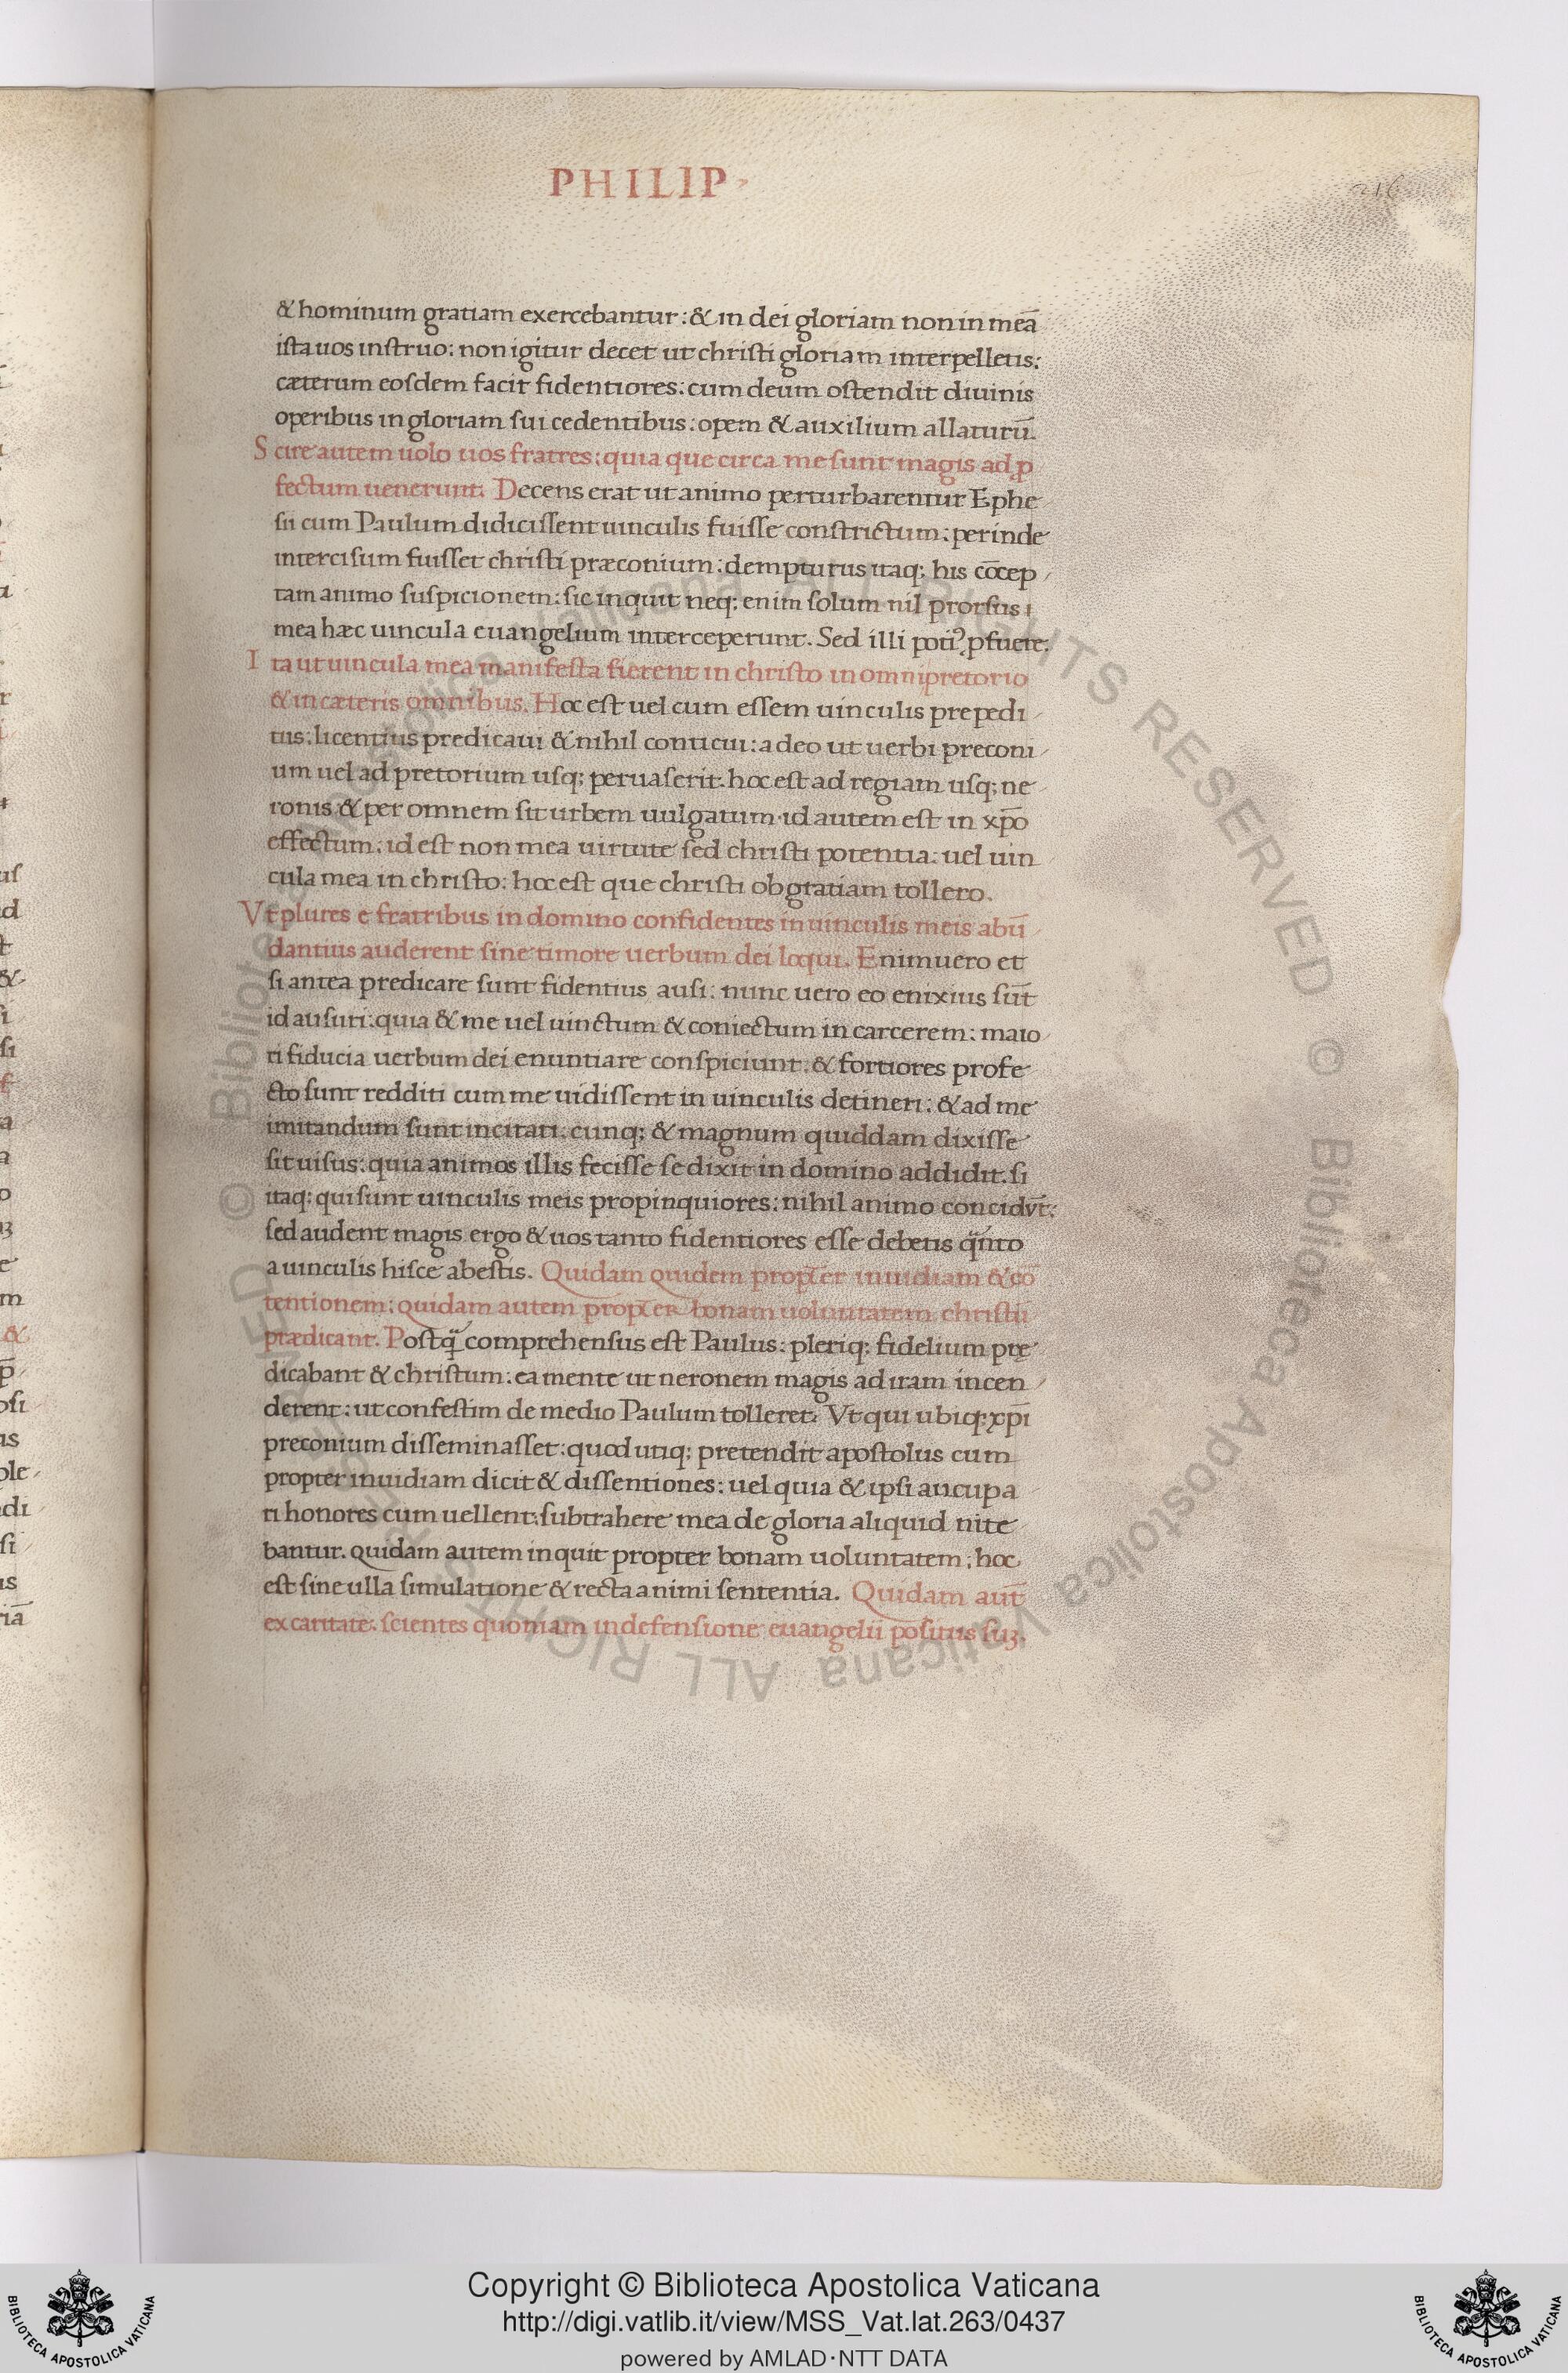 PHILIP
216
& hominum gratiam exercebantur: & in dei gloriam non in meā
ista uos instruo: non igitur decet ut christi gloriam interpelletis:
cæterum eosdem facit fidentiores: cum deum ostendit diuinis
operibus in gloriam sui cedentibus: opem & auxilium allaturū.
Scire autem uolo uos fratres: quia que circa me sunt magis ad ꝓ
fectum uenerunt. Decens erat ut animo perturbarentur Ephe
sii cum Paulum didicissent uinculis fuisse constrictum: perinde
intercisum fuisset christi præconium: dempturus itaq; his cōcep
tam animo suspicionem: sic inquit neq; enim solum nil prorsus
mea hæc uincula euangelium interceperunt. Sed illi poti⁹ ꝓfuere.
Ita ut uincula mea manifesta fierent in christo in omni pretorio
& in cæteris omnibus. Hoc est uel cum essem uinculis prepedi
tus: licentius predicaui & nihil conticui: adeo ut uerbi preconi
um uel ad pretorium usq; peruaserit. hoc est ad regiam usq; ne
ronis & per omnem sit urbem uulgatum. id autem est in xp̄o
effectum: id est non mea uirtute sed christi potentia: uel uin
cula mea in christo: hoc est que christi ob gratiam tollero.
Vt plures e fratribus in domino confidentes in uinculis meis abū
dantius auderent sine timore uerbum dei loqui. Enimuero et
si antea predicare sunt fidentius ausi: nunc uero eo enixius sūt
id ausuri: quia & me uel uinctum & coniectum in carcerem: maio
ri fiducia uerbum dei enuntiare conspiciunt. & fortiores profe
cto sunt redditi cum me uidissent in uinculis detineri: & ad me
imitandum sunt incitati. cunq; & magnum quiddam dixisse
sit uisus: quia animos illis fecisse se dixit in domino addidit. si
itaq; qui sunt uinculis meis propinquiores: nihil animo concidūt:
sed audent magis ergo & uos tanto fidentiores esse debetis q̈nto
a uinculis hisce abestis. Quidam quidem propter inuidiam & cō
tentionem: quidam autem propter bonam uoluntatem christū
prædicant. Postq̈ comprehensus est Paulus: pleriq; fidelium prę
dicabant & christum: ea mente ut neronem magis ad iram incen
derent: ut confestim de medio Paulum tolleret. Vt qui ubiq; xp̄i
preconium disseminasset: quod utiq; pretendit apostolus cum
propter inuidiam dicit & dissentiones: uel quia & ipsi aucupa
ri honores cum uellent: subtrahere mea de gloria aliquid nite
bantur. quidam autem inquit propter bonam uoluntatem: hoc
est sine ulla simulatione & recta animi sententia. Quidam aut̄
ex caritate: scientes quoniam in defensione euangelii positus suꝫ.
Copyright © Biblioteca Apostolica Vaticana
http://digi.vatlib.it/view/MSS_Vat.lat.263/0437
powered by AMLAD·NTT DATA